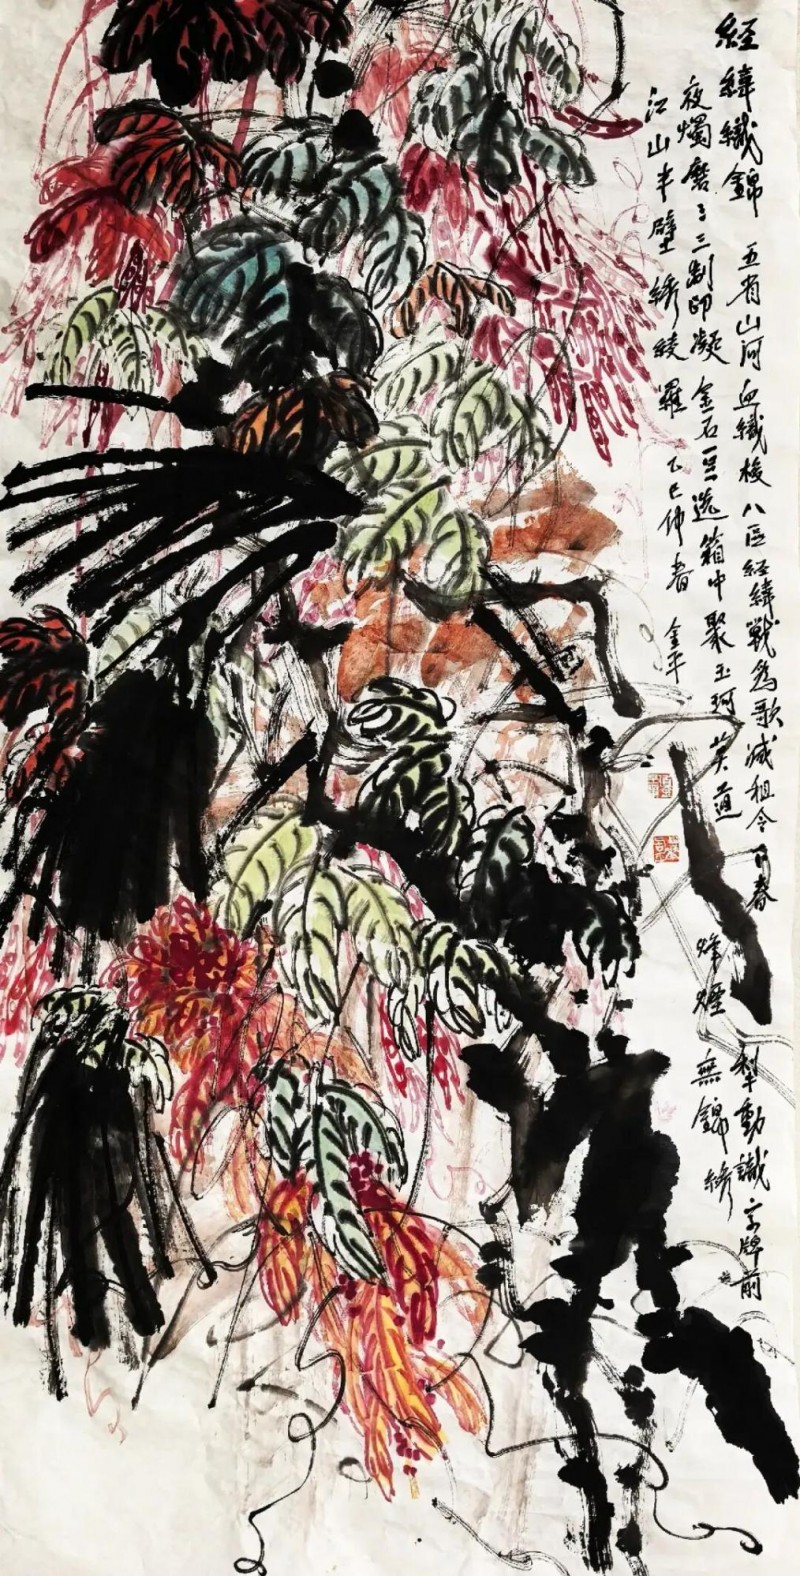 經緯織錦 五省山河血織梭八區經緯戰為歌減租令下春犁動識字牌前
夜燭磨三三制印凝金石豆選箱中聚玉珂莫道烽煙無錦綉
江山半壁綉綾羅 乙巳仲春 金平